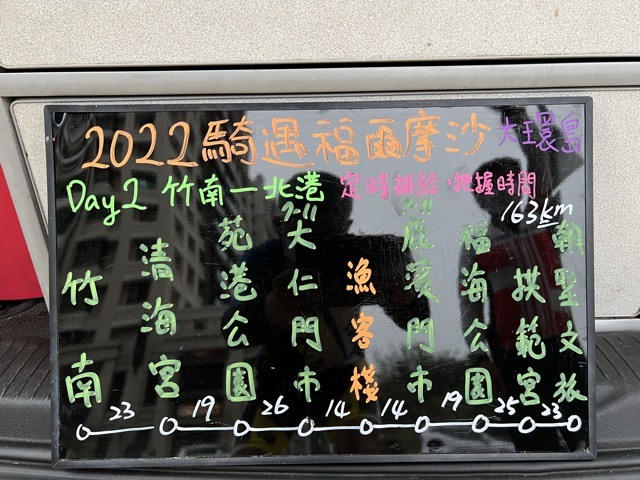 2022騎遇福爾摩沙 大王環島
Day2 竹南一北港 定時補給，把握時間
163km
竹南
清海宮
苑港公園
7-11
大仁門市
漁客棧
7-11
門市
福海公園
拱範宮
朝聖文旅
23 19 26 14 14 19 25 23